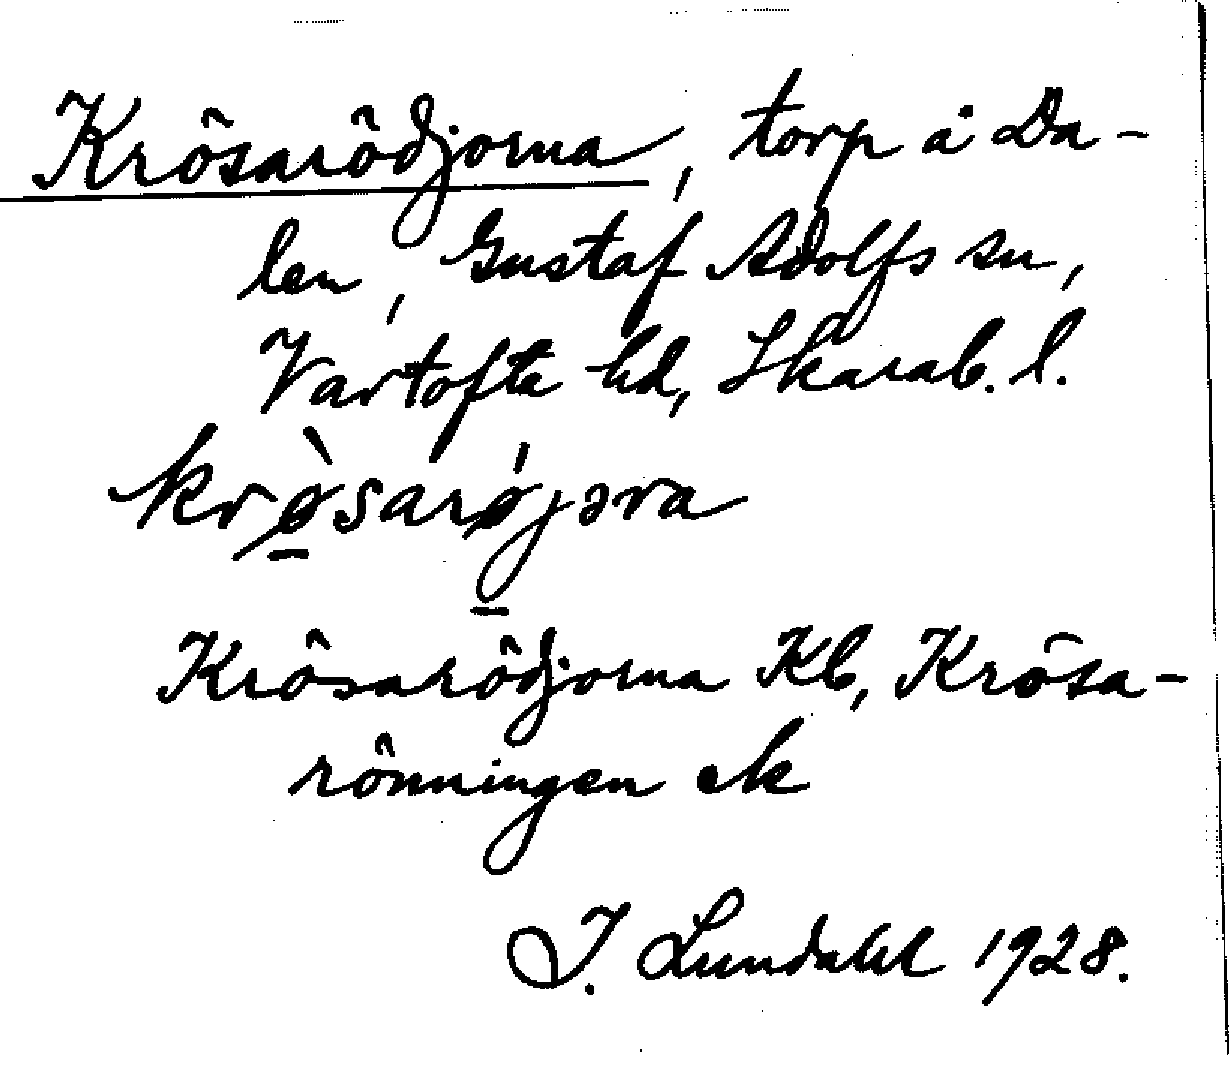 Krösarödjorna, torp å Da-
len, Gustaf Adolfs sn,
Vartofta hd, Skarab. l.
krø̀sarǿjɔra
Krösarödjorna Kb, Krösa-
rönningen ek
I. Lundahl 1928.